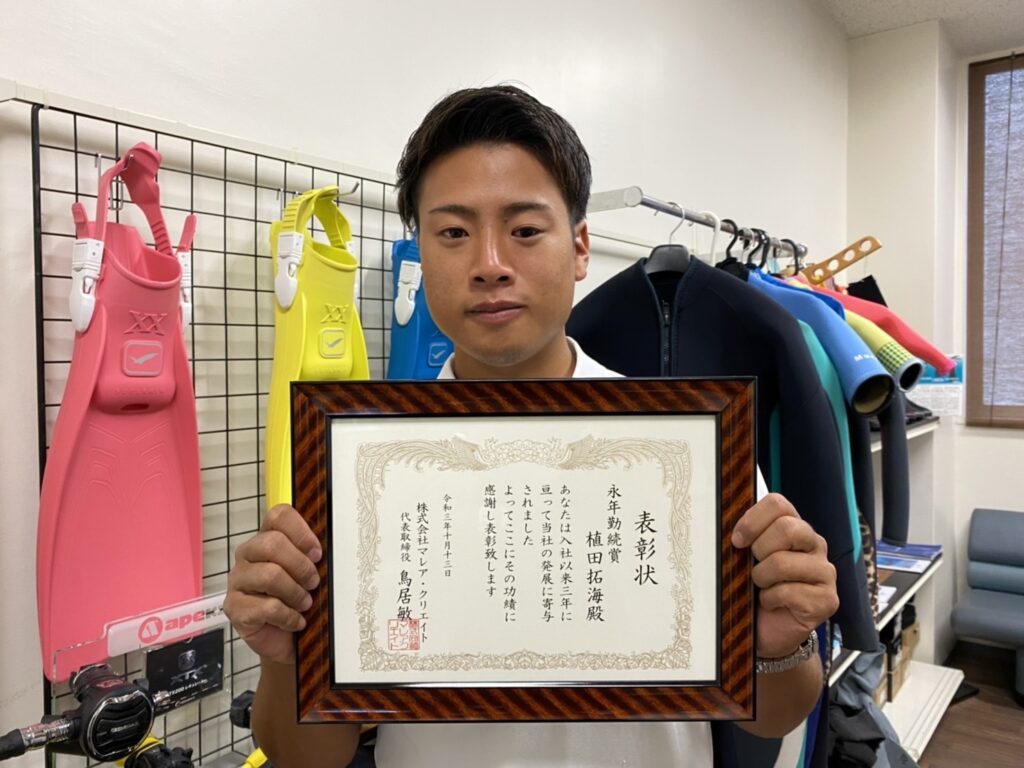 表彰状
永年勤続賞
植田拓海殿
あなたは入社以来三年に
亘って当社の発展に寄与
されました
よってここにその功績に
感謝し表彰致します
令和三年十月十三日
株式会社マレア・クリエイト
代表取締役 鳥居敏
XX
XX
ape